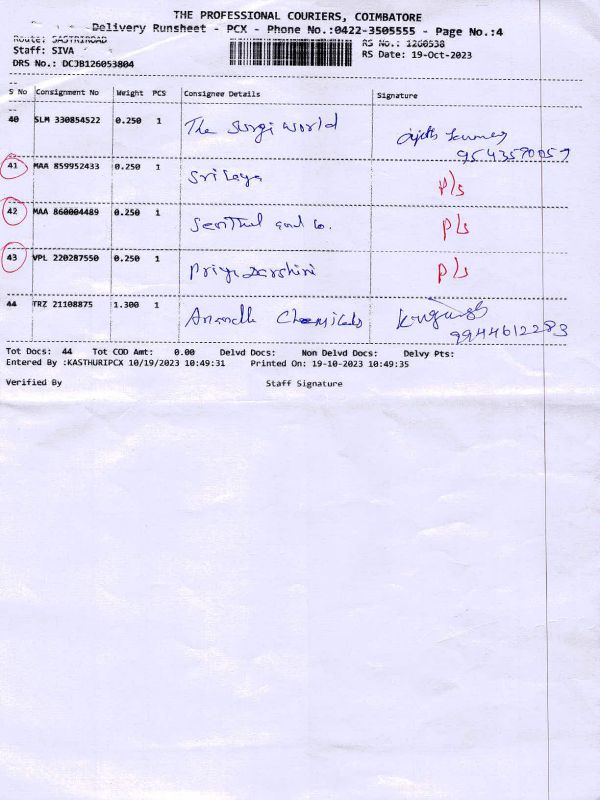 THE PROFESSIONAL COURIERS, COIMBATORE
Delivery Runsheet - PCX - Phone No.:0422-3505555 - Page No.:4
Route: SASTRIROAD RS No.: 1260538
Staff: SIVA RS Date: 19-Oct-2023
DRS No.: DCJB126053804
S No Consignment No Weight PCS Consignee Details Signature
40 SLM 330854522 0.250 1 The Surgi world
9543570057
41 MAA 859952433 0.250 1 Sri Laya P/s
42 MAA 860004489 0.250 1 Senthil and Co. P/s
43 VPL 220287550 0.250 1 Priya Darshini P/s
44 TRZ 21108875 1.300 1 Anandh Chemicals
9944612283
Tot Docs: 44 Tot COD Amt: 0.00 Delvd Docs: Non Delvd Docs: Delvy Pts:
Entered By :KASTHURIPCX 10/19/2023 10:49:31 Printed On: 19-10-2023 10:49:35
Verified By Staff Signature